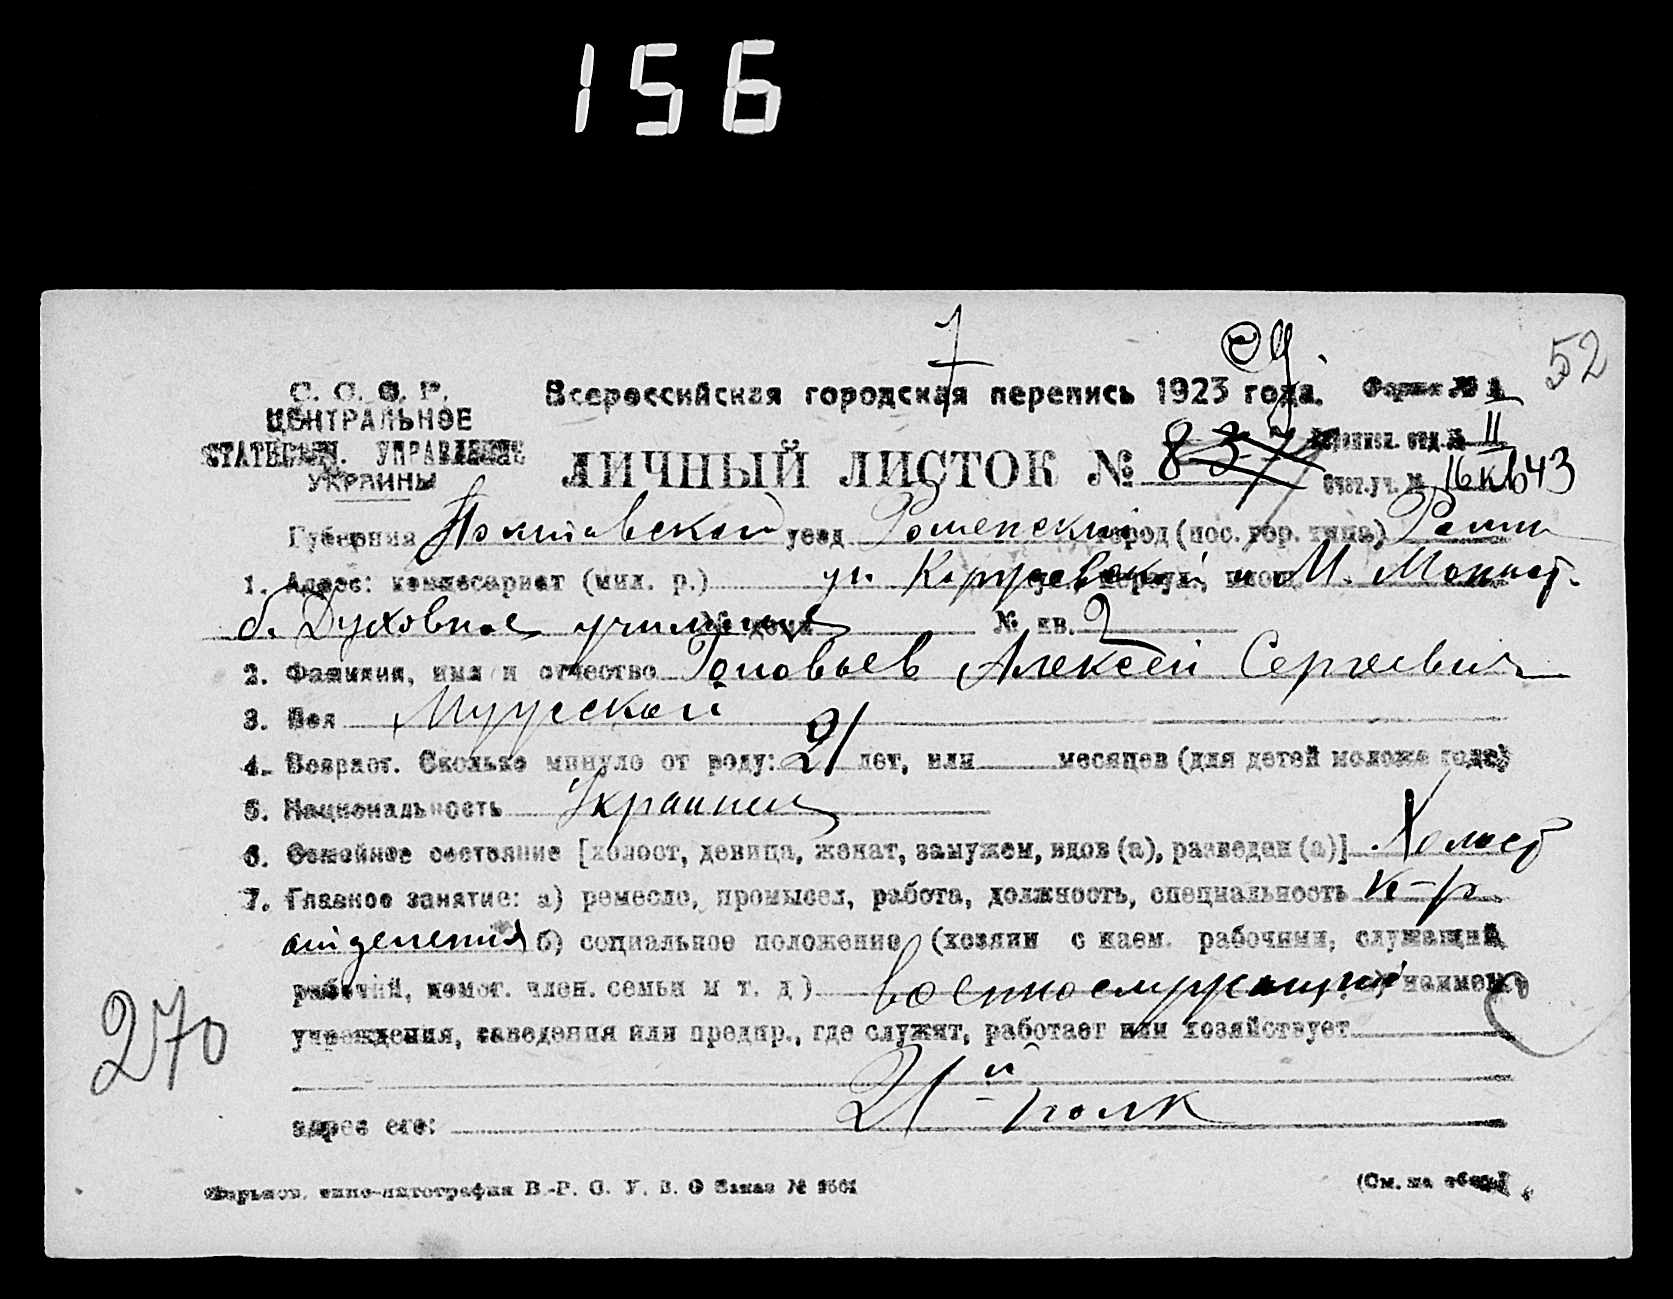 156
7
52
С. С. С. Р.
ЦЕНТРАЛЬНОЕ
СТАТИСТИЧ. УПРАВЛЕНИЕ
УКРАИНЫ
Всероссийская городская перепись 1923 года. Форма № 1
ЛИЧНЫЙ ЛИСТОК № 837
отд. № II
Счет. уч. № 16 кв 43
Губерния Полтавской уезд Роменский город (пос. гор. типа) Ромны
1. Адрес: комиссариат (мил. р.) ул. и М. Монаст.
б. Духовное училище № кв. 2
2. Фамилия, имя и отчество Головьев Алексей Сергеевич
3. Пол Мужской
4. Возраст. Сколько минуло от роду: 21 лет, или месяцев (для детей моложе года)
5. Национальность Украинец
6. Семейное состояние [холост, девица, женат, замужем, вдов (а), разведен (а)] Холост
7. Главное занятие: а) ремесло, промысел, работа, должность, специальность к-р
отделения б) социальное положение (хозяин с наем. рабочими, служащий,
рабочий, помог. член. семьи и т. д.) военнослужащий наимен.
учреждения, заведения или предпр., где служит, работает или хозяйствует
21й полк
адрес его:
270
Харьков. типо-литография В.-Р. С. У. В. О Заказ №
(См. на обор.)